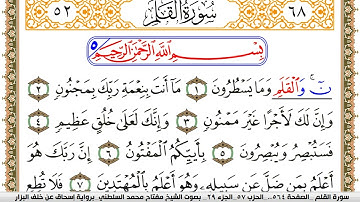 ٥٢ سُورَةُ القَلَمِ ٦٨
بِسْمِ اللَّهِ الرَّحْمَٰنِ الرَّحِيمِ ٥
نٓ ۚ وَالْقَلَمِ وَمَا يَسْطُرُونَ ١ مَا أَنتَ بِنِعْمَةِ رَبِّكَ بِمَجْنُونٍ ٢
وَإِنَّ لَكَ لَأَجْرًا غَيْرَ مَمْنُونٍ ٣ وَإِنَّكَ لَعَلَىٰ خُلُقٍ عَظِيمٍ ٤
فَسَتُبْصِرُ وَيُبْصِرُونَ ٥ بِأَييِّكُمُ الْمَفْتُونُ ٦ إِنَّ رَبَّكَ هُوَ
أَعْلَمُ بِمَن ضَلَّ عَن سَبِيلِهِ وَهُوَ أَعْلَمُ بِالْمُهْتَدِينَ ٧ فَلَا تُطِعِ
سورة القلم الصفحة ٥٦٤... الحزب ٥٧ .الجزء ٢٩ .. بصوت الشيخ مفتاح محمد السلطني .برواية إسحاق عن خلف البزار